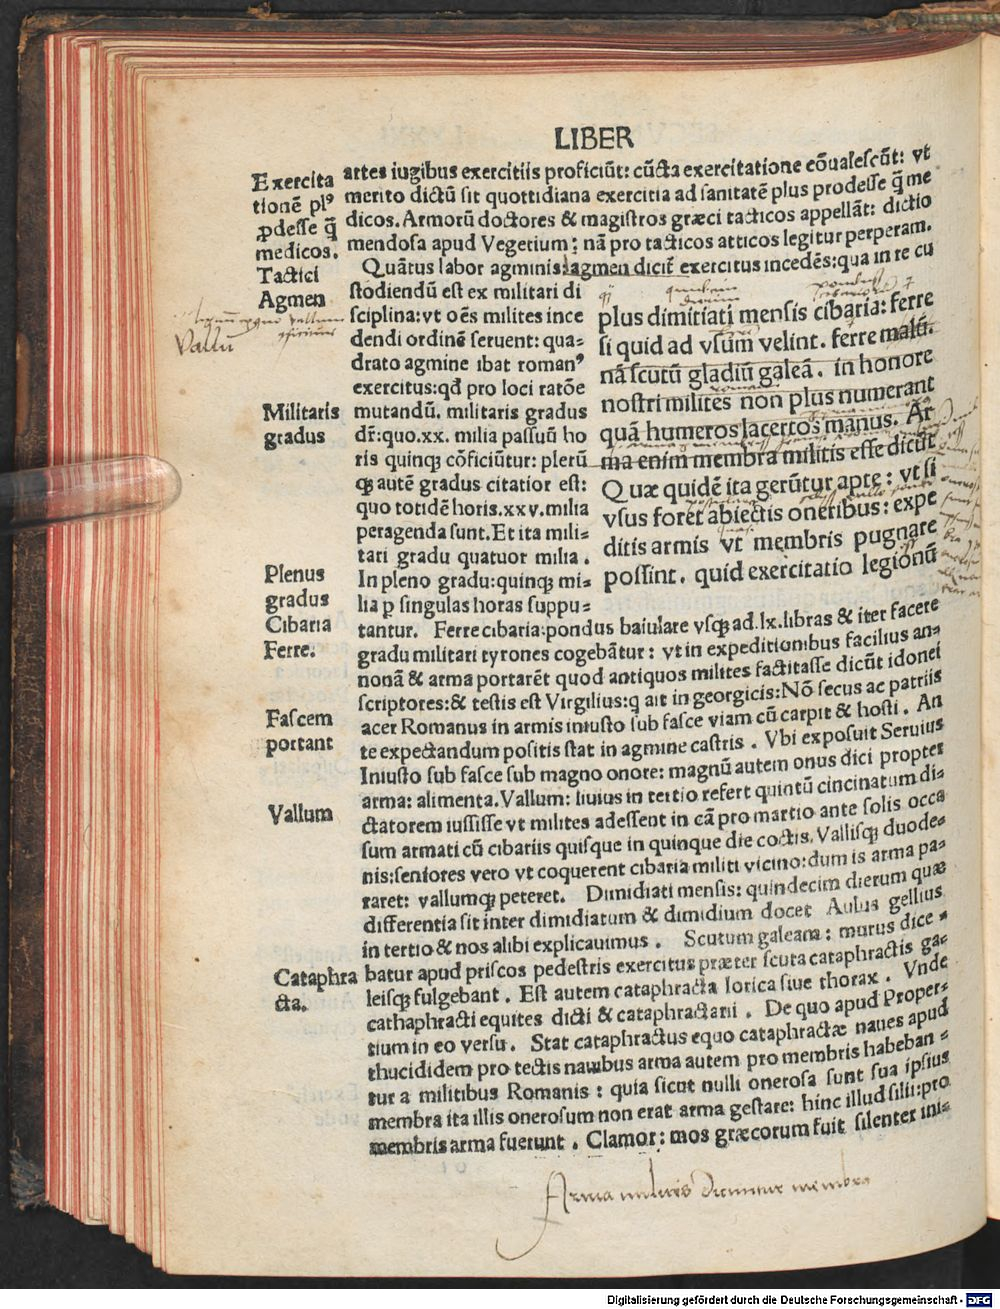 LIBER
Exercita
tionē plꝰ
ꝓdesse q̃
medicos.
Tactici
Agmen
Vallū
Militaris
gradus
Plenus
gradus
Cibaria
Ferre.
Fascem
portant
Vallum
Cataphra
cta.
artes iugibus exercitiis proficiūt: cūcta exercitatione cōualescūt: vt
merito dictū sit quottidiana exercitia ad sanitatē plus prodesse q̃ me
dicos. Armorū doctores & magistros græci tacticos appellāt: dictio
mendosa apud Vegetium: nā pro tacticos atticos legitur perperam.
Quātus labor agminis: agmen dicit̃ exercitus incedēs: qua in re cu
stodiendū est ex militari di
sciplina: vt oēs milites ince
dendi ordinē seruent: qua-
drato agmine ibat romanꝰ
exercitus: qd̃ pro loci ratōe
mutandū. militaris gradus
dr̃: quo .xx. milia passuū ho
ris quinqꝫ cōficiūtur: plerū
qꝫ autē gradus citatior est:
quo totidē horis .xxv. milia
peragenda sunt. Et ita mili-
tari gradu quatuor milia.
In pleno gradu: quinqꝫ mi-
lia p singulas horas suppu-
plus dimitiati mensis cibaria: ferre
si quid ad vsum velint. ferre malū.
nā scutū gladiū galeā. in honore
nostri milites non plus numerant
quā humeros lacertos manus. Ar
ma enim membra militis esse dicūt
Quæ quidē ita gerūtur apte: vt si
vsus foret abiectis oneribus: expe
ditis armis vt membris pugnare
possint. quid exercitatio legionū
tantur. Ferre cibaria: pondus baiulare vsqꝫ ad .lx. libras & iter facere
gradu militari tyrones cogebātur: vt in expeditionibus facilius an-
nonā & arma portarēt quod antiquos milites factitasse dicūt idonei
scriptores: & testis est Virgilius: q ait in georgicis: Nō secus ac patriis
acer Romanus in armis iniusto sub fasce viam cū carpit & hosti. An
te expectandum positis stat in agmine castris. Vbi exposuit Seruius
Iniusto sub fasce sub magno onore: magnū autem onus dici propter
arma: alimenta. Vallum: liuius in tertio refert quintū cincinatum di-
ctatorem iussisse vt milites adessent in cā pro martio ante solis occa
sum armati cū cibariis quisque in quinque die coctis. Vallisqꝫ duode-
nis: seniores vero vt coquerent cibaria militi vicino: dum is arma pa-
raret: vallumqꝫ peteret. Dimidiati mensis: quindecim dierum quæ
differentia sit inter dimidiatum & dimidium docet Aulus gellius
in tertio & nos alibi explicauimus. Scutum galeam: murus dice-
batur apud priscos pedestris exercitus præter scuta cataphractis ga-
leisqꝫ fulgebant. Est autem cataphracta lorica siue thorax. Vnde
cathaphracti equites dicti & cataphractarii. De quo apud Proper-
tium in eo versu. Stat cataphractus equo cataphractæ naues apud
thucididem pro tectis nauibus arma autem pro membris habeban-
tur a militibus Romanis: quia sicut nulli onerosa sunt sua ipsius
membra ita illis onerosum non erat arma gestare: hinc illud silii: pro
membris arma fuerunt. Clamor: mos græcorum fuit silenter ini-
Arma militis dicuntur membra
Digitalisierung gefördert durch die Deutsche Forschungsgemeinschaft - DFG